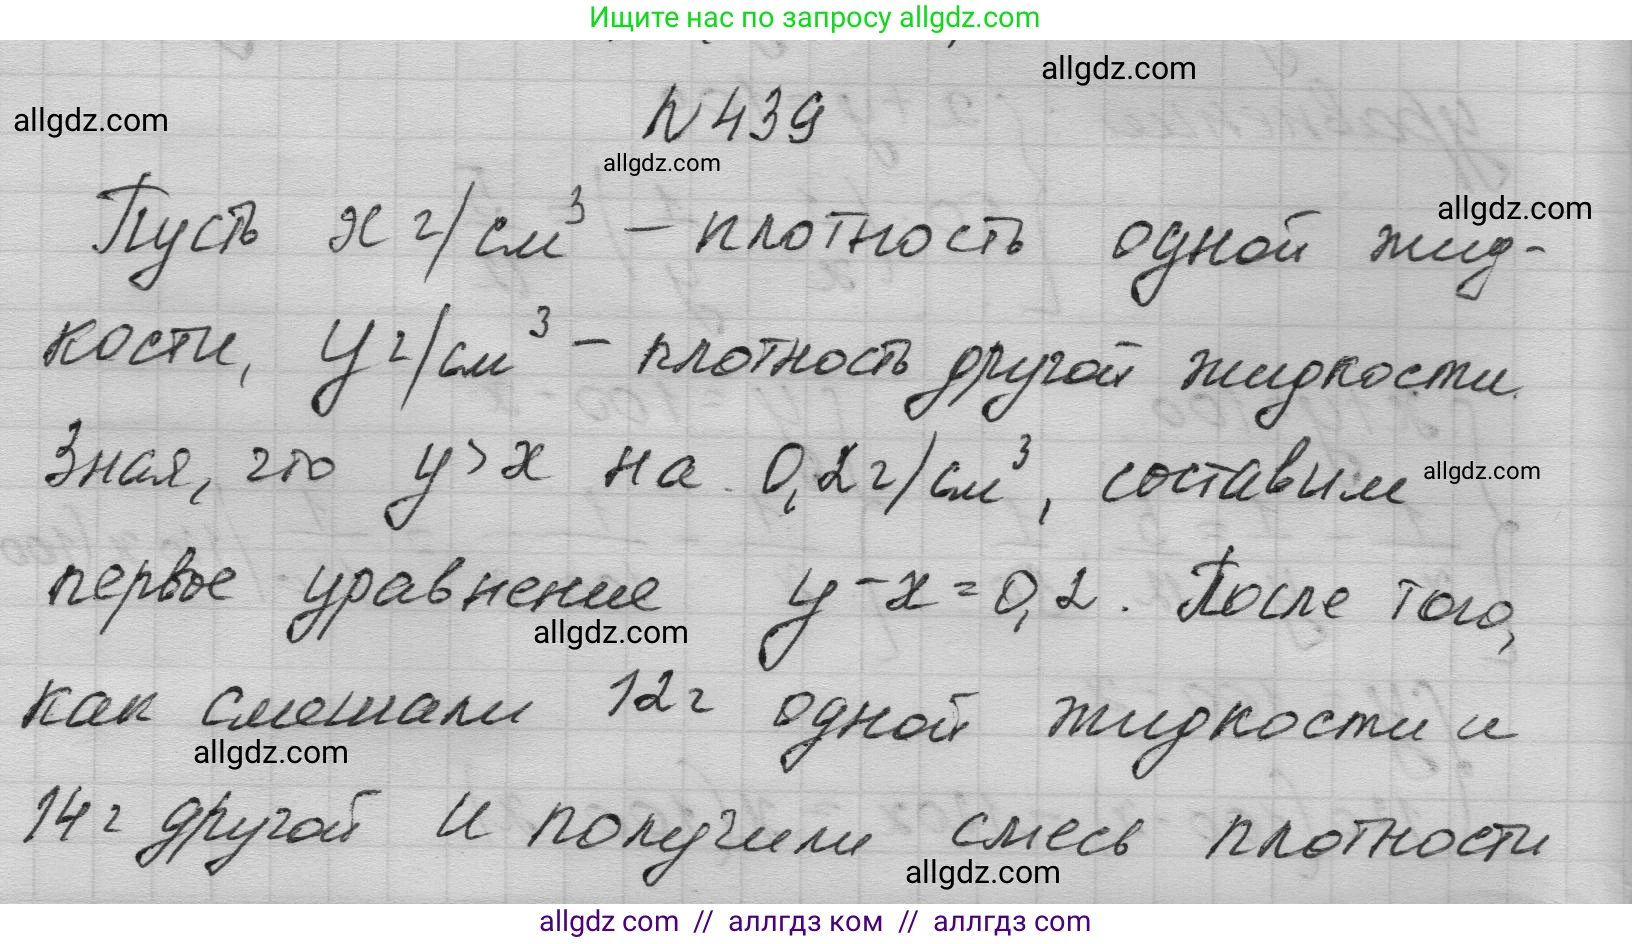 Ищите нас по запросу allgdz.com
allgdz.com
allgdz.com
N 439
allgdz.com
Пусть x г/см³ – плотность одной жид-
allgdz.com
кости, y г/см³ – плотность другой жидкости.
Зная, что y > x на 0,2 г/см³, составим
allgdz.com
первое уравнение y - x = 0,2. После того,
allgdz.com
как смешали 12 г одной жидкости и
allgdz.com
14 г другой и получили смесь плотности
allgdz.com
allgdz com // аллгдз ком // allgdz.com